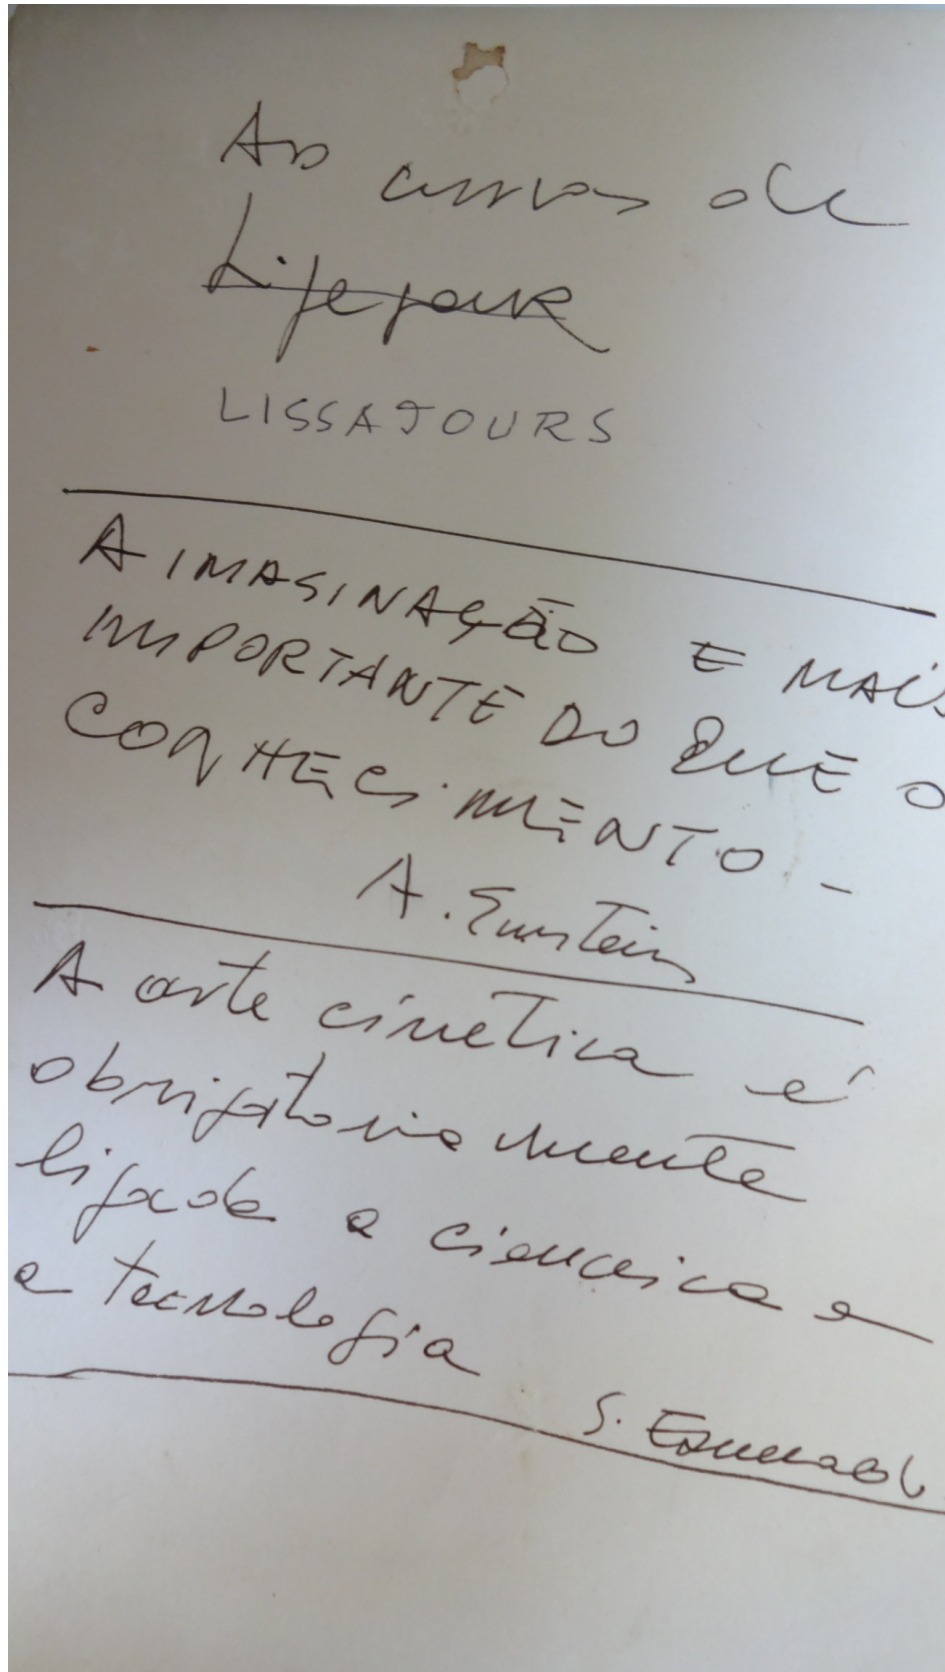 As curvas de
Lifejour
LISSAJOURS
A IMAGINAÇÃO E MAIS
IMPORTANTE DO QUE O
CONHECIMENTO -
A. Einstein
A arte cinética é
obrigatoriamente
ligada a ciencia e
a tecnologia
S.